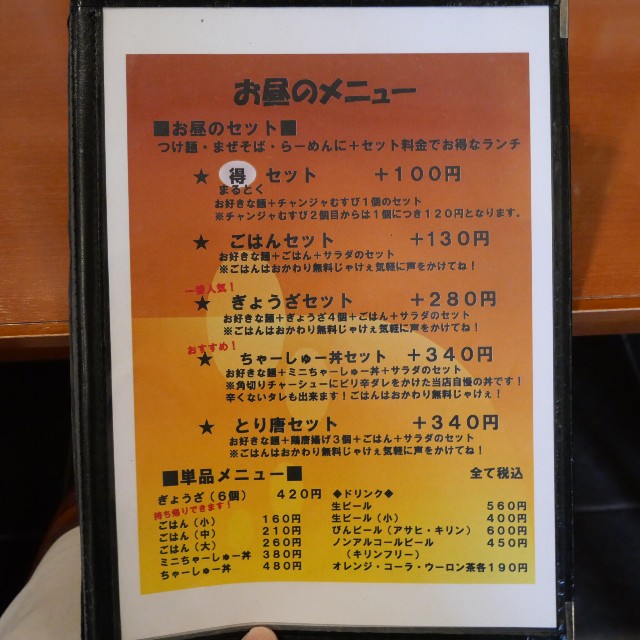 お昼のメニュー
■お昼のセット■
つけ麺・まぜそば・らーめんに＋セット料金でお得なランチ
★ 得 セット ＋１００円
まるとく
お好きな麺＋チャンジャむすび１個のセット
※チャンジャむすび２個目からは１個につき１２０円となります。
★ ごはんセット ＋１３０円
お好きな麺＋ごはん＋サラダのセット
※ごはんはおかわり無料じゃけぇ気軽に声をかけてね！
一番人気！
★ ぎょうざセット ＋２８０円
お好きな麺＋ぎょうざ４個＋ごはん＋サラダのセット
※ごはんはおかわり無料じゃけぇ気軽に声をかけてね！
おすすめ！
★ ちゃーしゅー丼セット ＋３４０円
お好きな麺＋ミニちゃーしゅー丼＋サラダのセット
※角切りチャーシューにピリ辛ダレをかけた当店自慢の丼です！
辛くないタレも出来ます！ごはんはおかわり無料じゃけぇ！
★ とり唐セット ＋３４０円
お好きな麺＋鶏唐揚げ３個＋ごはん＋サラダのセット
※ごはんはおかわり無料じゃけぇ気軽に声をかけてね！
■単品メニュー■ 全て税込
ぎょうざ（６個） ４２０円
持ち帰りできます！
ごはん（小） １６０円
ごはん（中） ２１０円
ごはん（大） ２６０円
ミニちゃーしゅー丼 ３８０円
ちゃーしゅー丼 ４８０円
◆ドリンク◆
生ビール ５６０円
生ビール（小） ４００円
びんビール（アサヒ・キリン） ６００円
ノンアルコールビール ４５０円
（キリンフリー）
オレンジ・コーラ・ウーロン茶各１９０円